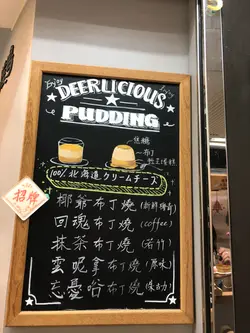 Enjoy Enjoy
DEERLICIOUS
PUDDING
焦糖
布丁
100% 北海道クリームチーズ
招牌
椰爺布丁燒(新鮮椰香)
回魂布丁燒(coffee)
抹茶布丁燒(若竹)
雲昵拿布丁燒(原味)
忘憂唂布丁燒(朱古力)